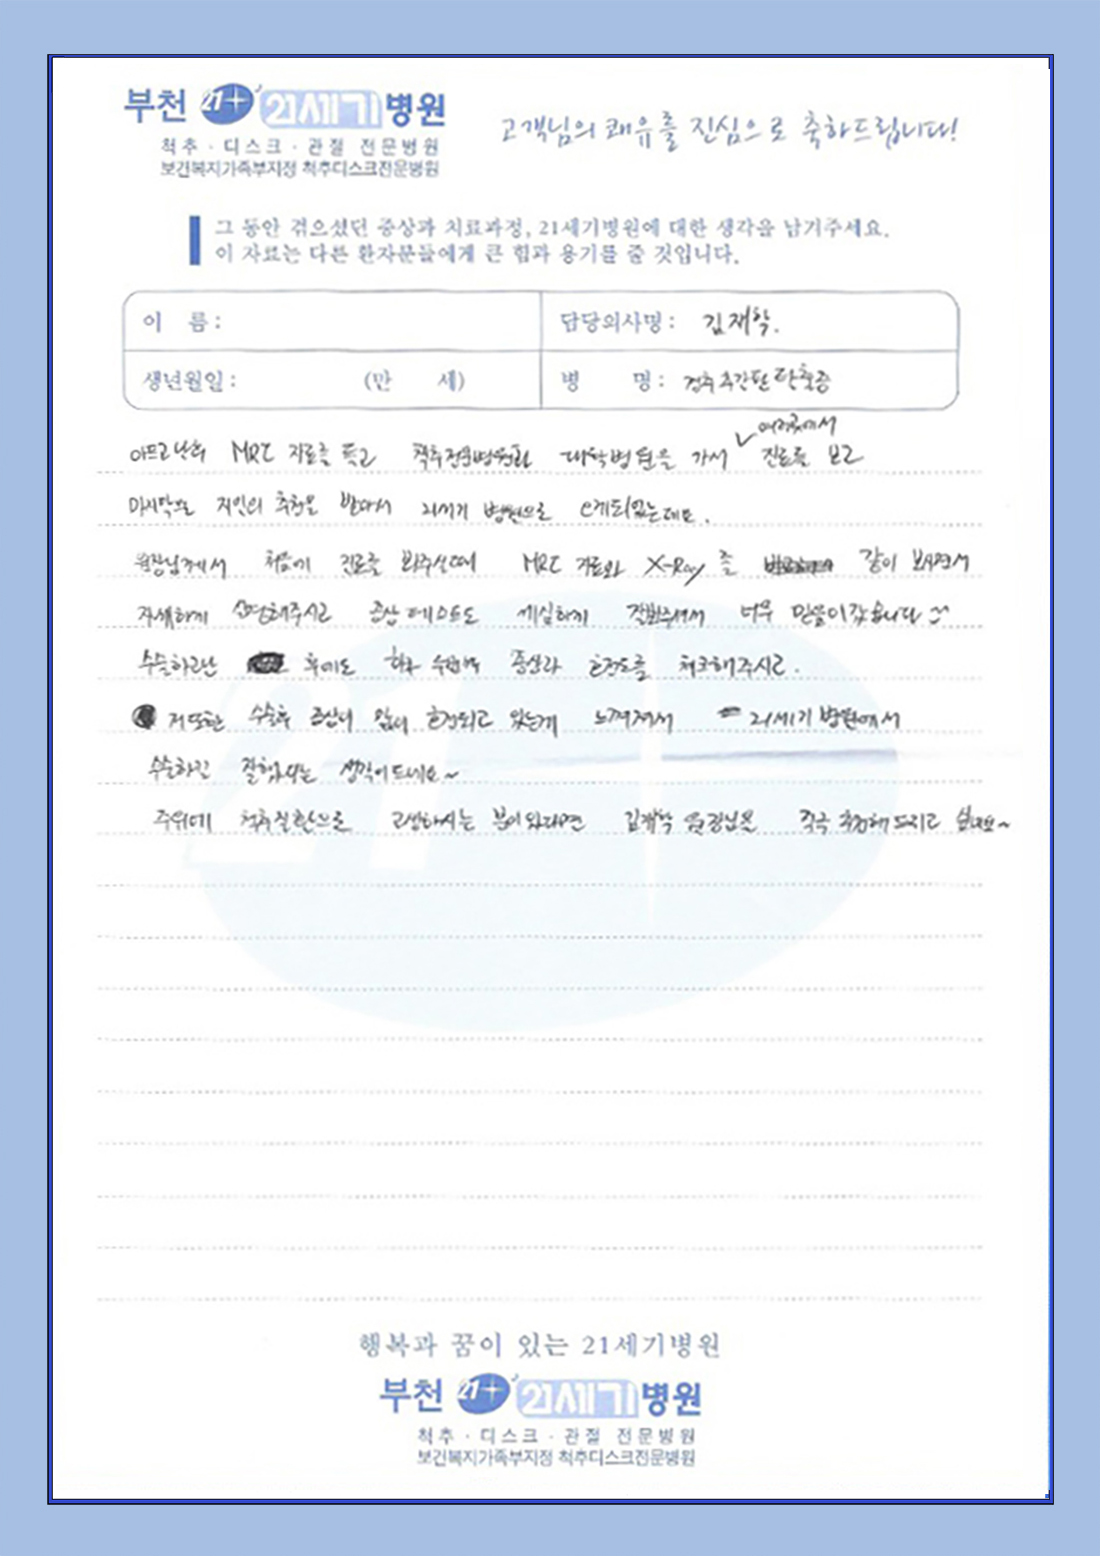 부천 21+ 21세기병원
척추 · 디스크 · 관절 전문병원
보건복지가족부지정 척추디스크전문병원
고객님의 쾌유를 진심으로 축하드립니다!
그 동안 겪으셨던 증상과 치료과정, 21세기병원에 대한 생각을 남겨주세요.
이 자료는 다른 환자분들에게 큰 힘과 용기를 줄 것입니다.
이 름 :
담당의사명 : 김재학.
생년월일 : (만 세)
병 명 : 경추 추간판 탈출증
여러곳에서
아프고난후 MRI 자료를 들고 척추전문병원과 대학병원을 가서 진료를 보고
마지막으로 지인의 추천을 받아서 21세기 병원으로 오게되었는데요.
원장님께서 처음에 진료를 봐주실때 MRI 자료와 X-Ray 를 같이 보시면서
자세하게 설명해주시고 증상 테스트도 세심하게 진행해주셔서 너무 믿음이갔습니다
수술하고난 후에도 하루 수번씩 증상과 호전도를 체크해주시고.
저또한 수술후 증상이 많이 호전되고 있는게 느껴져서 21세기 병원에서
수술하길 잘했다는 생각이드네요~
주위에 척추질환으로 고생하시는 분이 있다면 김재학 원장님을 적극 추천해드리고 싶네요~
21
행복과 꿈이 있는 21세기병원
부천 21+ 21세기병원
척추 · 디스크 · 관절 전문병원
보건복지가족부지정 척추디스크전문병원